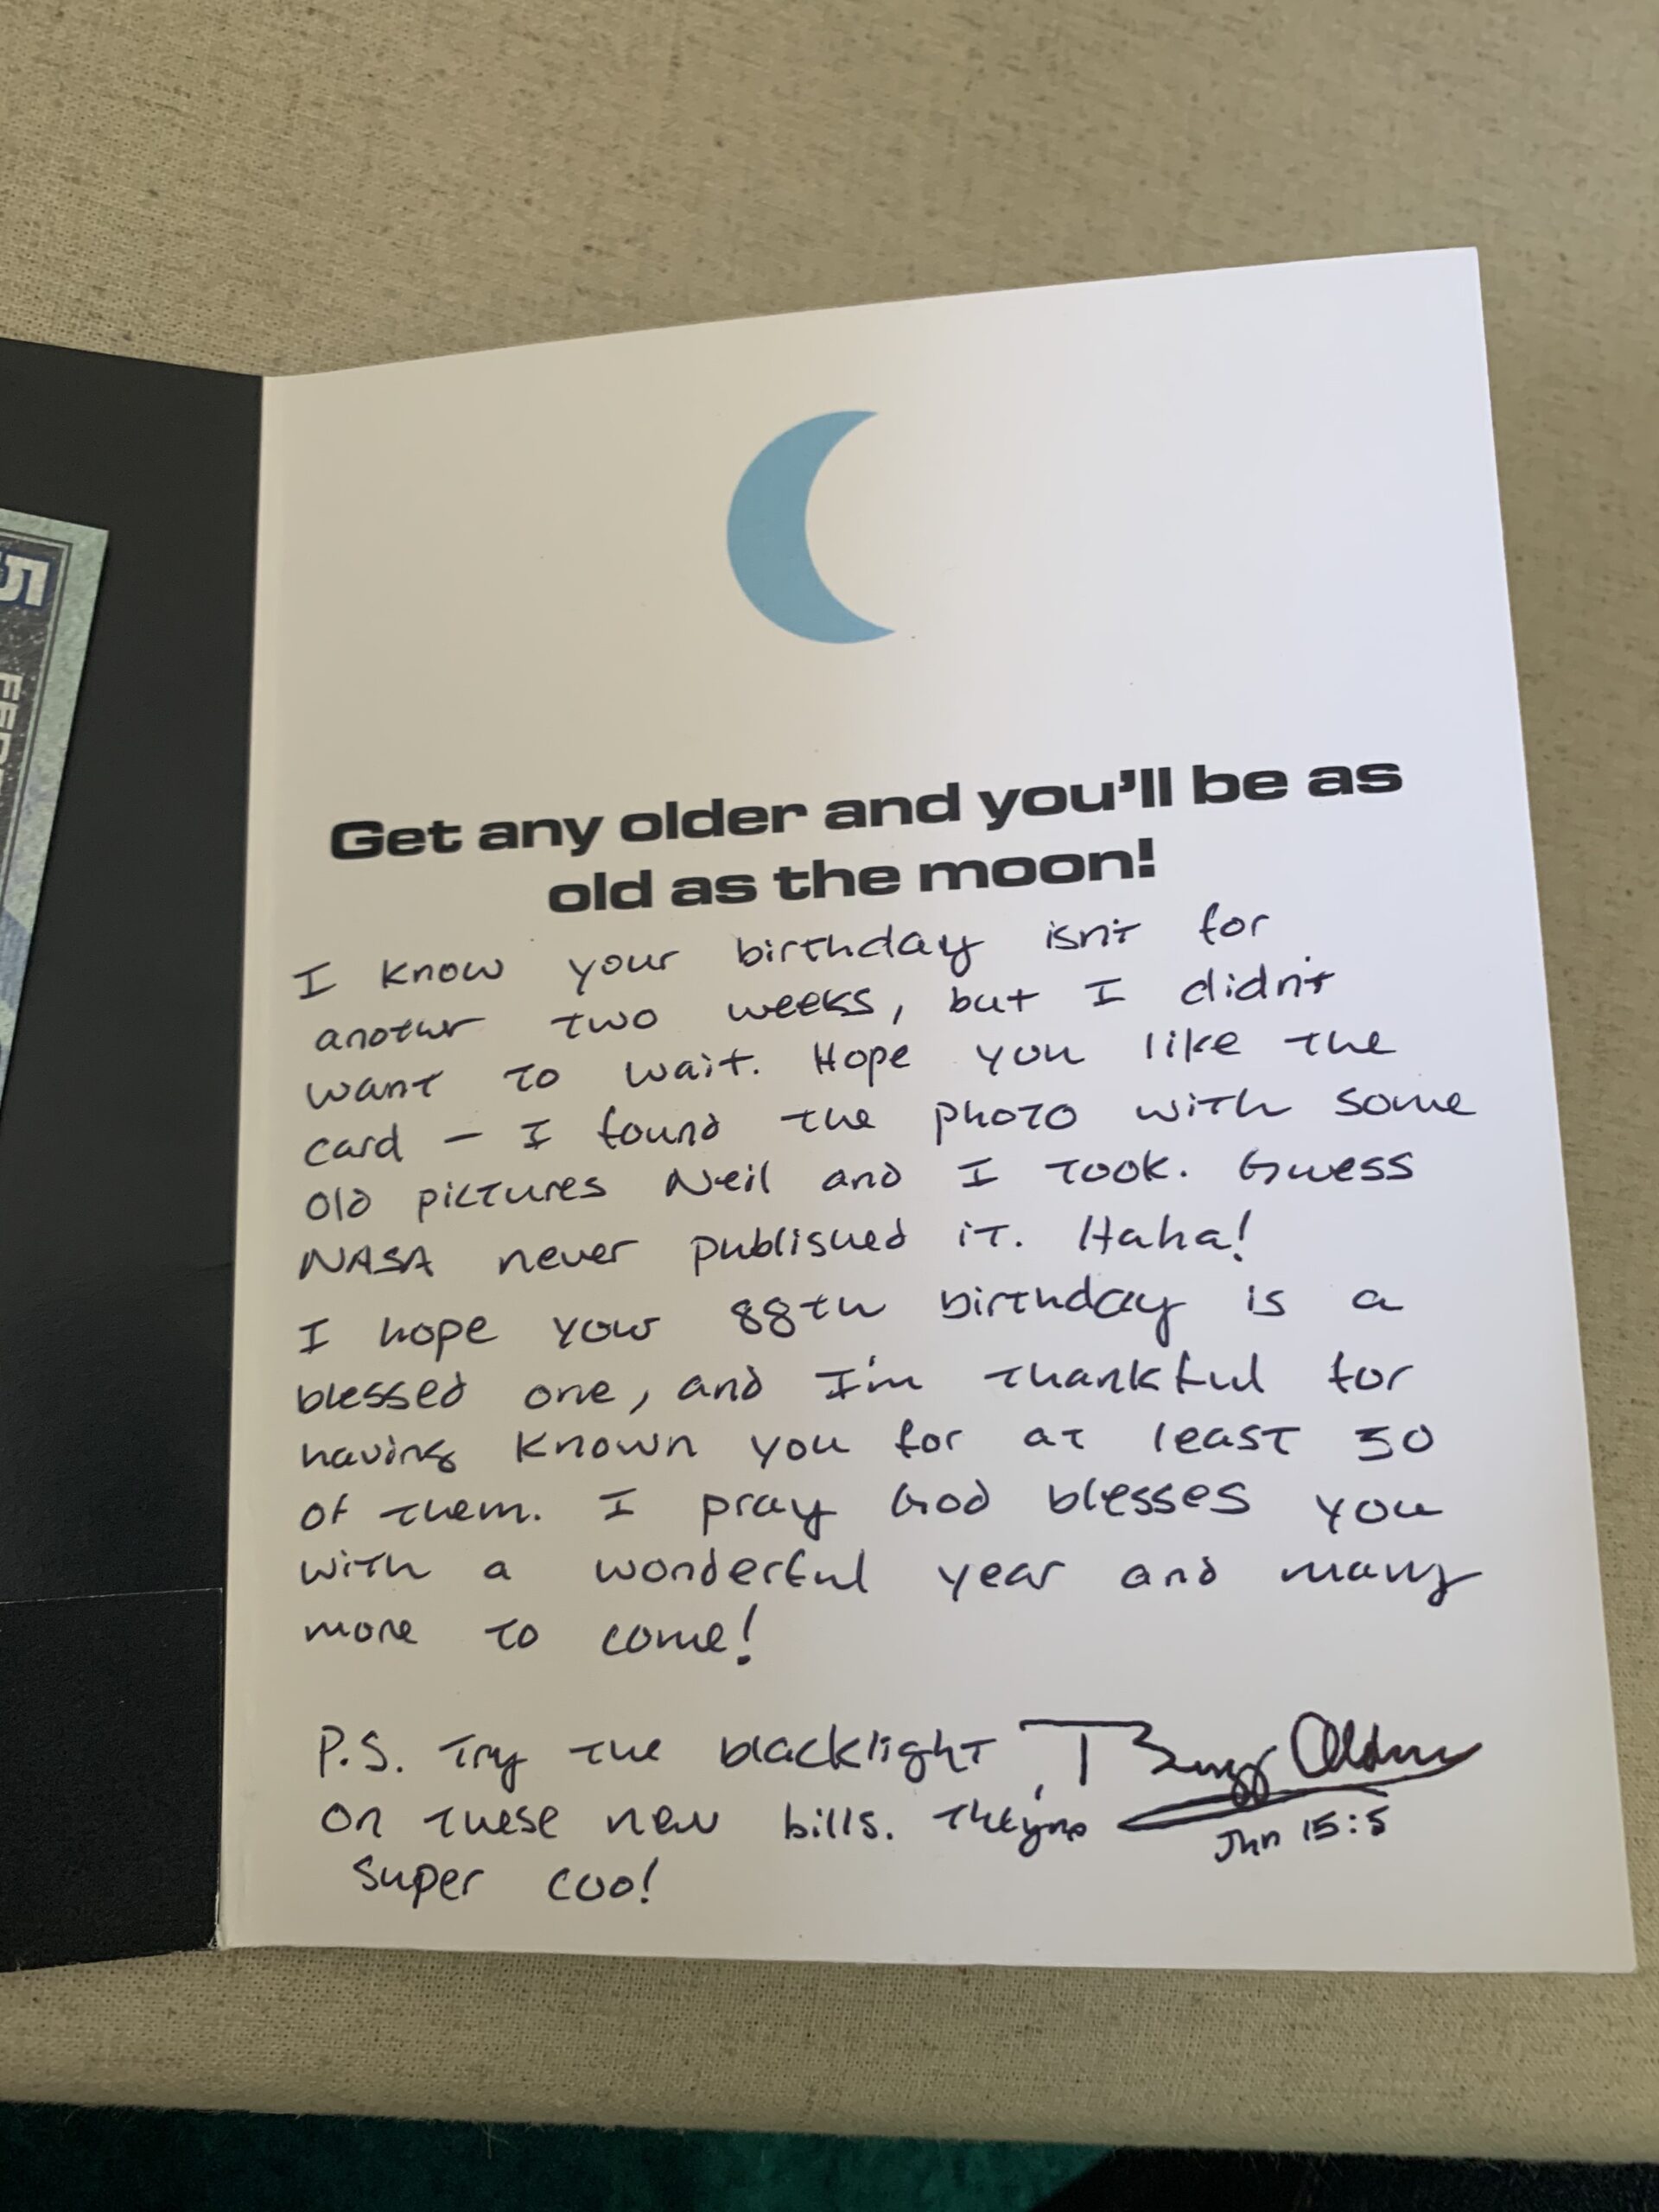 5
FED
Get any older and you'll be as
old as the moon!
I know your birthday isn't for
another two weeks, but I didn't
want to wait. Hope you like the
card – I found the photo with some
old pictures Neil and I took. Guess
NASA never published it. Haha!
I hope your 88th birthday is a
blessed one, and I'm thankful for
having known you for at least 50
of them. I pray God blesses you
with a wonderful year and many
more to come!
P.S. Try the blacklight
on these new bills. They're
super cool!
Buzz Aldrin
Jhn 15:5